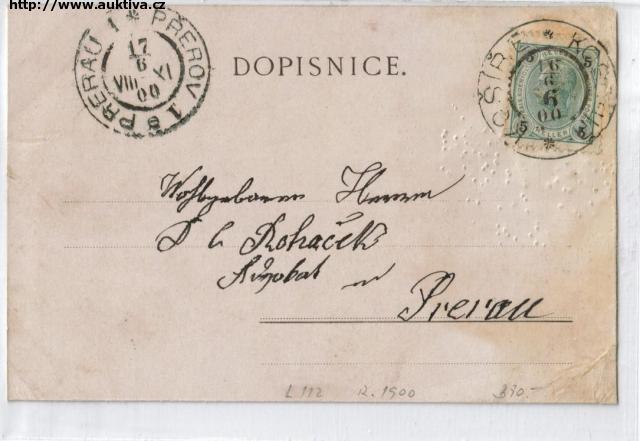 http://www.auktiva.cz
PRERAU 1 * PŘEROV 1
17
6
VIII XI
00
DOPISNICE.
5 5
6
6
00
HELLER
5 5
Wohlgeboren Herrn
Rohaček
Advokat in
Prerau
L 112 R. 1900